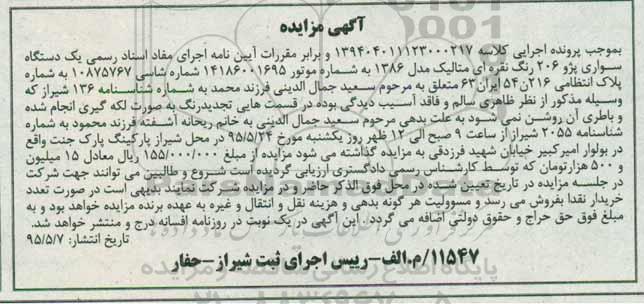 آگهی مزایده
بموجب پرونده اجرایی کلاسه ۱۳۹۴۰۴۰۱۱۱۲۳۰۰۰۲۱۷ و برابر مقررات آیین نامه اجرای مفاد اسناد رسمی یک دستگاه
سواری پژو ۲۰۶ رنگ نقره ای متالیک مدل ۱۳۸۶ به شماره موتور ۱۴۱۸۶۰۰۱۶۹۵ شماره شاسی ۱۰۸۷۵۷۶۷ به شماره
پلاک انتظامی ۲۱۶ن۵۴ ایران۶۳ متعلق به مرحوم سعید جمال الدینی فرزند محمد به شماره شناسنامه ۱۳۶ شیراز که
وسیله مذکور از نظر ظاهری سالم و فاقد آسیب دیدگی بوده در قسمت هایی تجدیدرنگ به صورت لکه گیری انجام شده
و باطری آن روشن نمی شود به علت بدهی مرحوم سعید جمال الدینی به خانم ریحانه آشفته فرزند محمود به شماره
شناسنامه ۲۰۵۵ شیراز از ساعت ۹ صبح الی ۱۲ ظهر روز یکشنبه مورخ ۹۵/۵/۲۴ در محل شیراز پارکینگ پارک جنت واقع
در بولوار امیرکبیر خیابان شهید فرزدقی به مزایده گذاشته می شود مزایده از مبلغ ۱۵۵/۰۰۰/۰۰۰ ریال معادل ۱۵ میلیون
و ۵۰۰ هزارتومان که توسط کارشناس رسمی دادگستری ارزیابی گردیده است شروع و طالبین می توانند جهت شرکت
در جلسه مزایده در تاریخ تعیین شده در محل فوق الذکر حاضر و در مزایده شرکت نمایند بدیهی است در صورت تعدد
خریدار نقدا بفروش می رسد و مسوولیت هر گونه بدهی و هزینه نقل و انتقال و غیره به عهده برنده مزایده خواهد بود و به
مبلغ فوق حق حراج و حقوق دولتی اضافه می گردد. این آگهی در یک نوبت در روزنامه افسانه درج و منتشر خواهد شد.
تاریخ انتشار: ۹۵/۵/۷
۱۱۵۴۷/م.الف-رییس اجرای ثبت شیراز-حفار